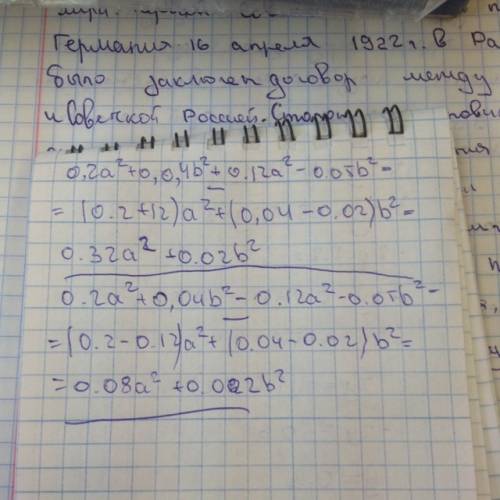 Германия 16 апреля 1922г. В Ра
было заключен договор между
и Советской Россией.
0,2a²+0,0,4b²+0.12a²-0.05b²=
=(0.2+12)a²+(0,04-0.02)b²=
0.32a²+0.02b²
0.2a²+0,04b²-0.12a²-0.05b²=
=(0.2-0.12)a²+(0.04-0.02)b²=
=0.08a²+0.002b²